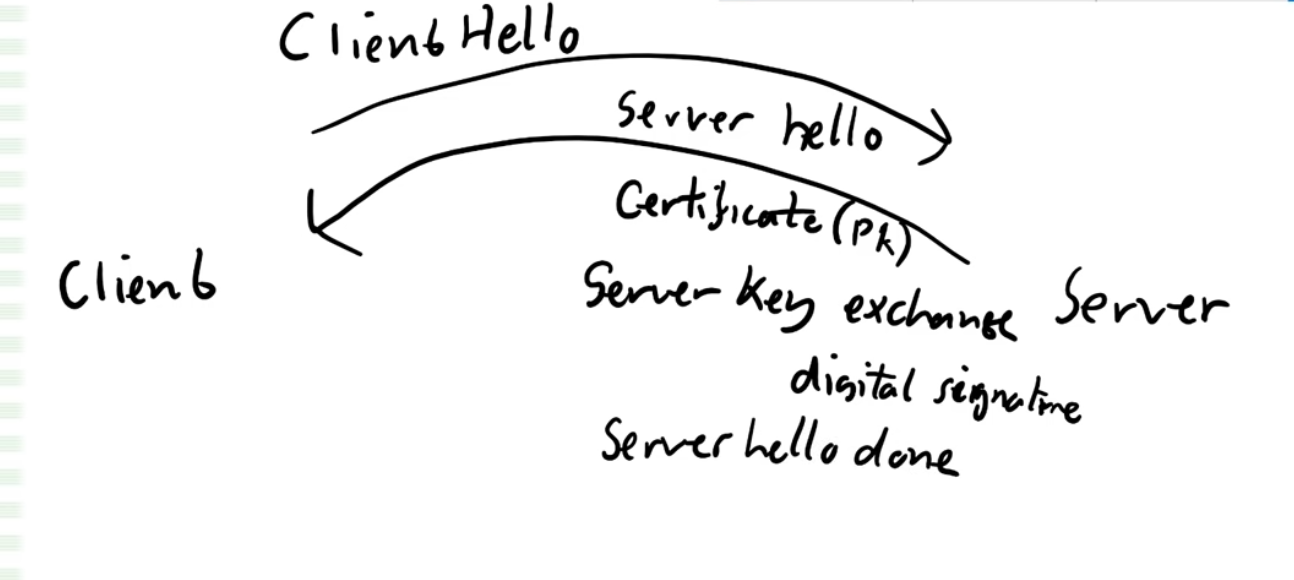 Client Hello
Server hello
Certificate (Pk)
Client
Server Key exchange
Server
digital signature
Server hello done